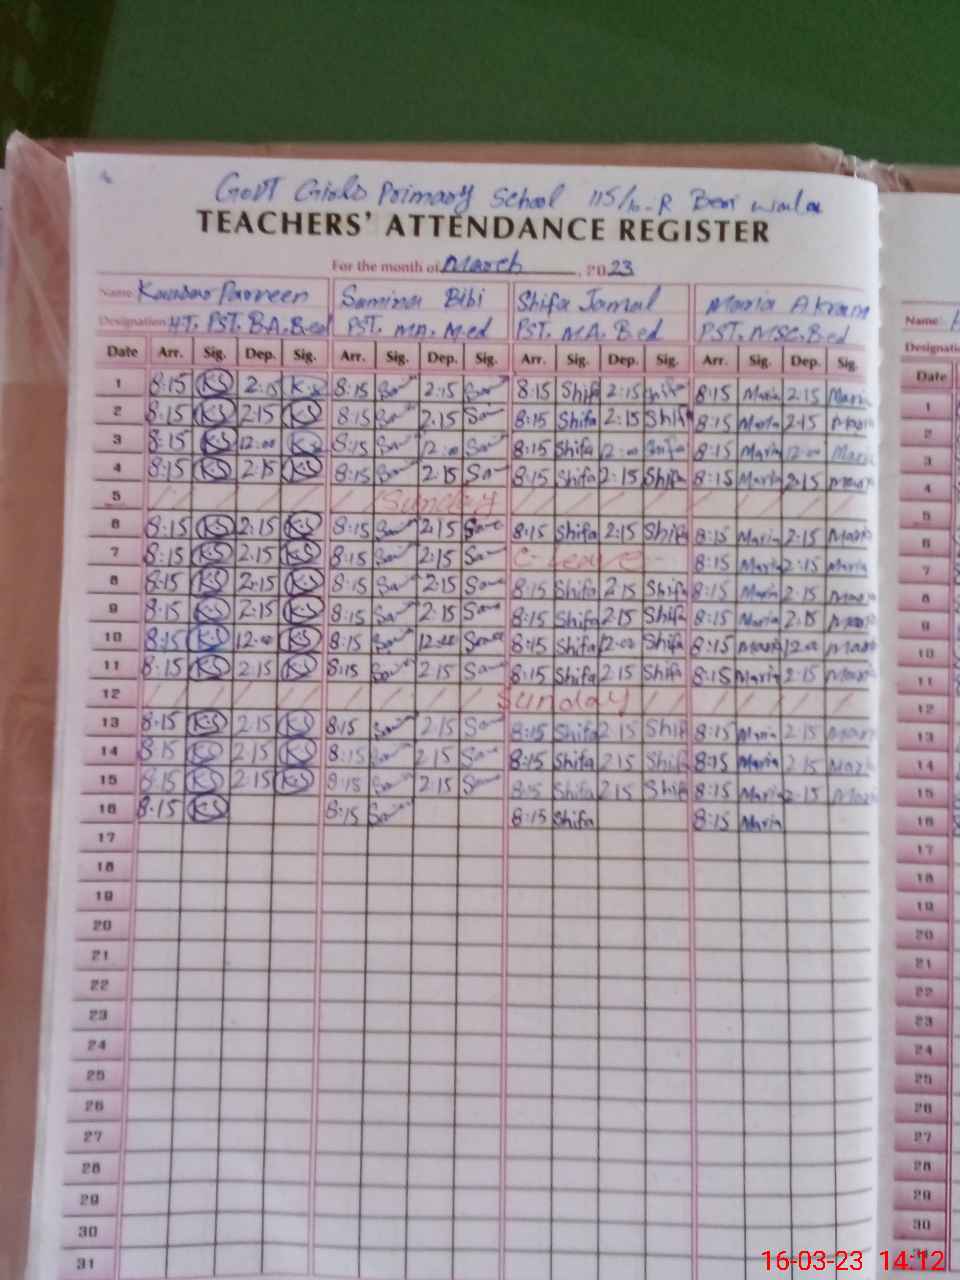 Govt Girls Primary School 115/10-R Beri wala
TEACHERS' ATTENDANCE REGISTER
For the month of March, 2023
Name Kausar Parveen Samina Bibi Shifa Jamal Maria Akram Name
Designation HT. PST. B.A. B.ed PST. MA. M.ed PST. M.A. B.ed PST. MSC. B.ed
Date Arr. Sig. Dep. Sig. Arr. Sig. Dep. Sig. Arr. Sig. Dep. Sig. Arr. Sig. Dep. Sig. Date
1 8:15 K.S 2:15 K.S 8:15 2:15 8:15 Shifa 2:15 Shifa 8:15 Maria 2:15 Maria 1
2 8:15 K.S 2:15 K.S 8:15 2:15 8:15 Shifa 2:15 Shifa 8:15 Maria 2:15 Maria 2
3 8:15 K.S 12:00 K.S 8:15 12:00 8:15 Shifa 12:00 Shifa 8:15 Maria 12:00 Maria 3
4 8:15 K.S 2:15 K.S 8:15 2:15 8:15 Shifa 2:15 Shifa 8:15 Maria 2:15 Maria 4
5 Sunday 5
6 8:15 K.S 2:15 K.S 8:15 2:15 8:15 Shifa 2:15 Shifa 8:15 Maria 2:15 Maria 6
7 8:15 K.S 2:15 K.S 8:15 2:15 C-Leave 8:15 Maria 2:15 Maria 7
8 8:15 K.S 2:15 K.S 8:15 2:15 8:15 Shifa 2:15 Shifa 8:15 Maria 2:15 Maria 8
9 8:15 K.S 2:15 K.S 8:15 2:15 8:15 Shifa 2:15 Shifa 8:15 Maria 2:15 Maria 9
10 8:15 K.S 12:00 K.S 8:15 12:00 8:15 Shifa 12:00 Shifa 8:15 Maria 12:00 Maria 10
11 8:15 K.S 2:15 K.S 8:15 2:15 8:15 Shifa 2:15 Shifa 8:15 Maria 2:15 Maria 11
12 Sunday 12
13 8:15 K.S 2:15 K.S 8:15 2:15 8:15 Shifa 2:15 Shifa 8:15 Maria 2:15 Maria 13
14 8:15 K.S 2:15 K.S 8:15 2:15 8:15 Shifa 2:15 Shifa 8:15 Maria 2:15 Maria 14
15 8:15 K.S 2:15 K.S 8:15 2:15 8:15 Shifa 2:15 Shifa 8:15 Maria 2:15 Maria 15
16 8:15 K.S 8:15 8:15 Shifa 8:15 Maria 16
17 17
18 18
19 19
20 20
21 21
22 22
23 23
24 24
25 25
26 26
27 27
28 28
29 29
30 30
31
16-03-23 14:12